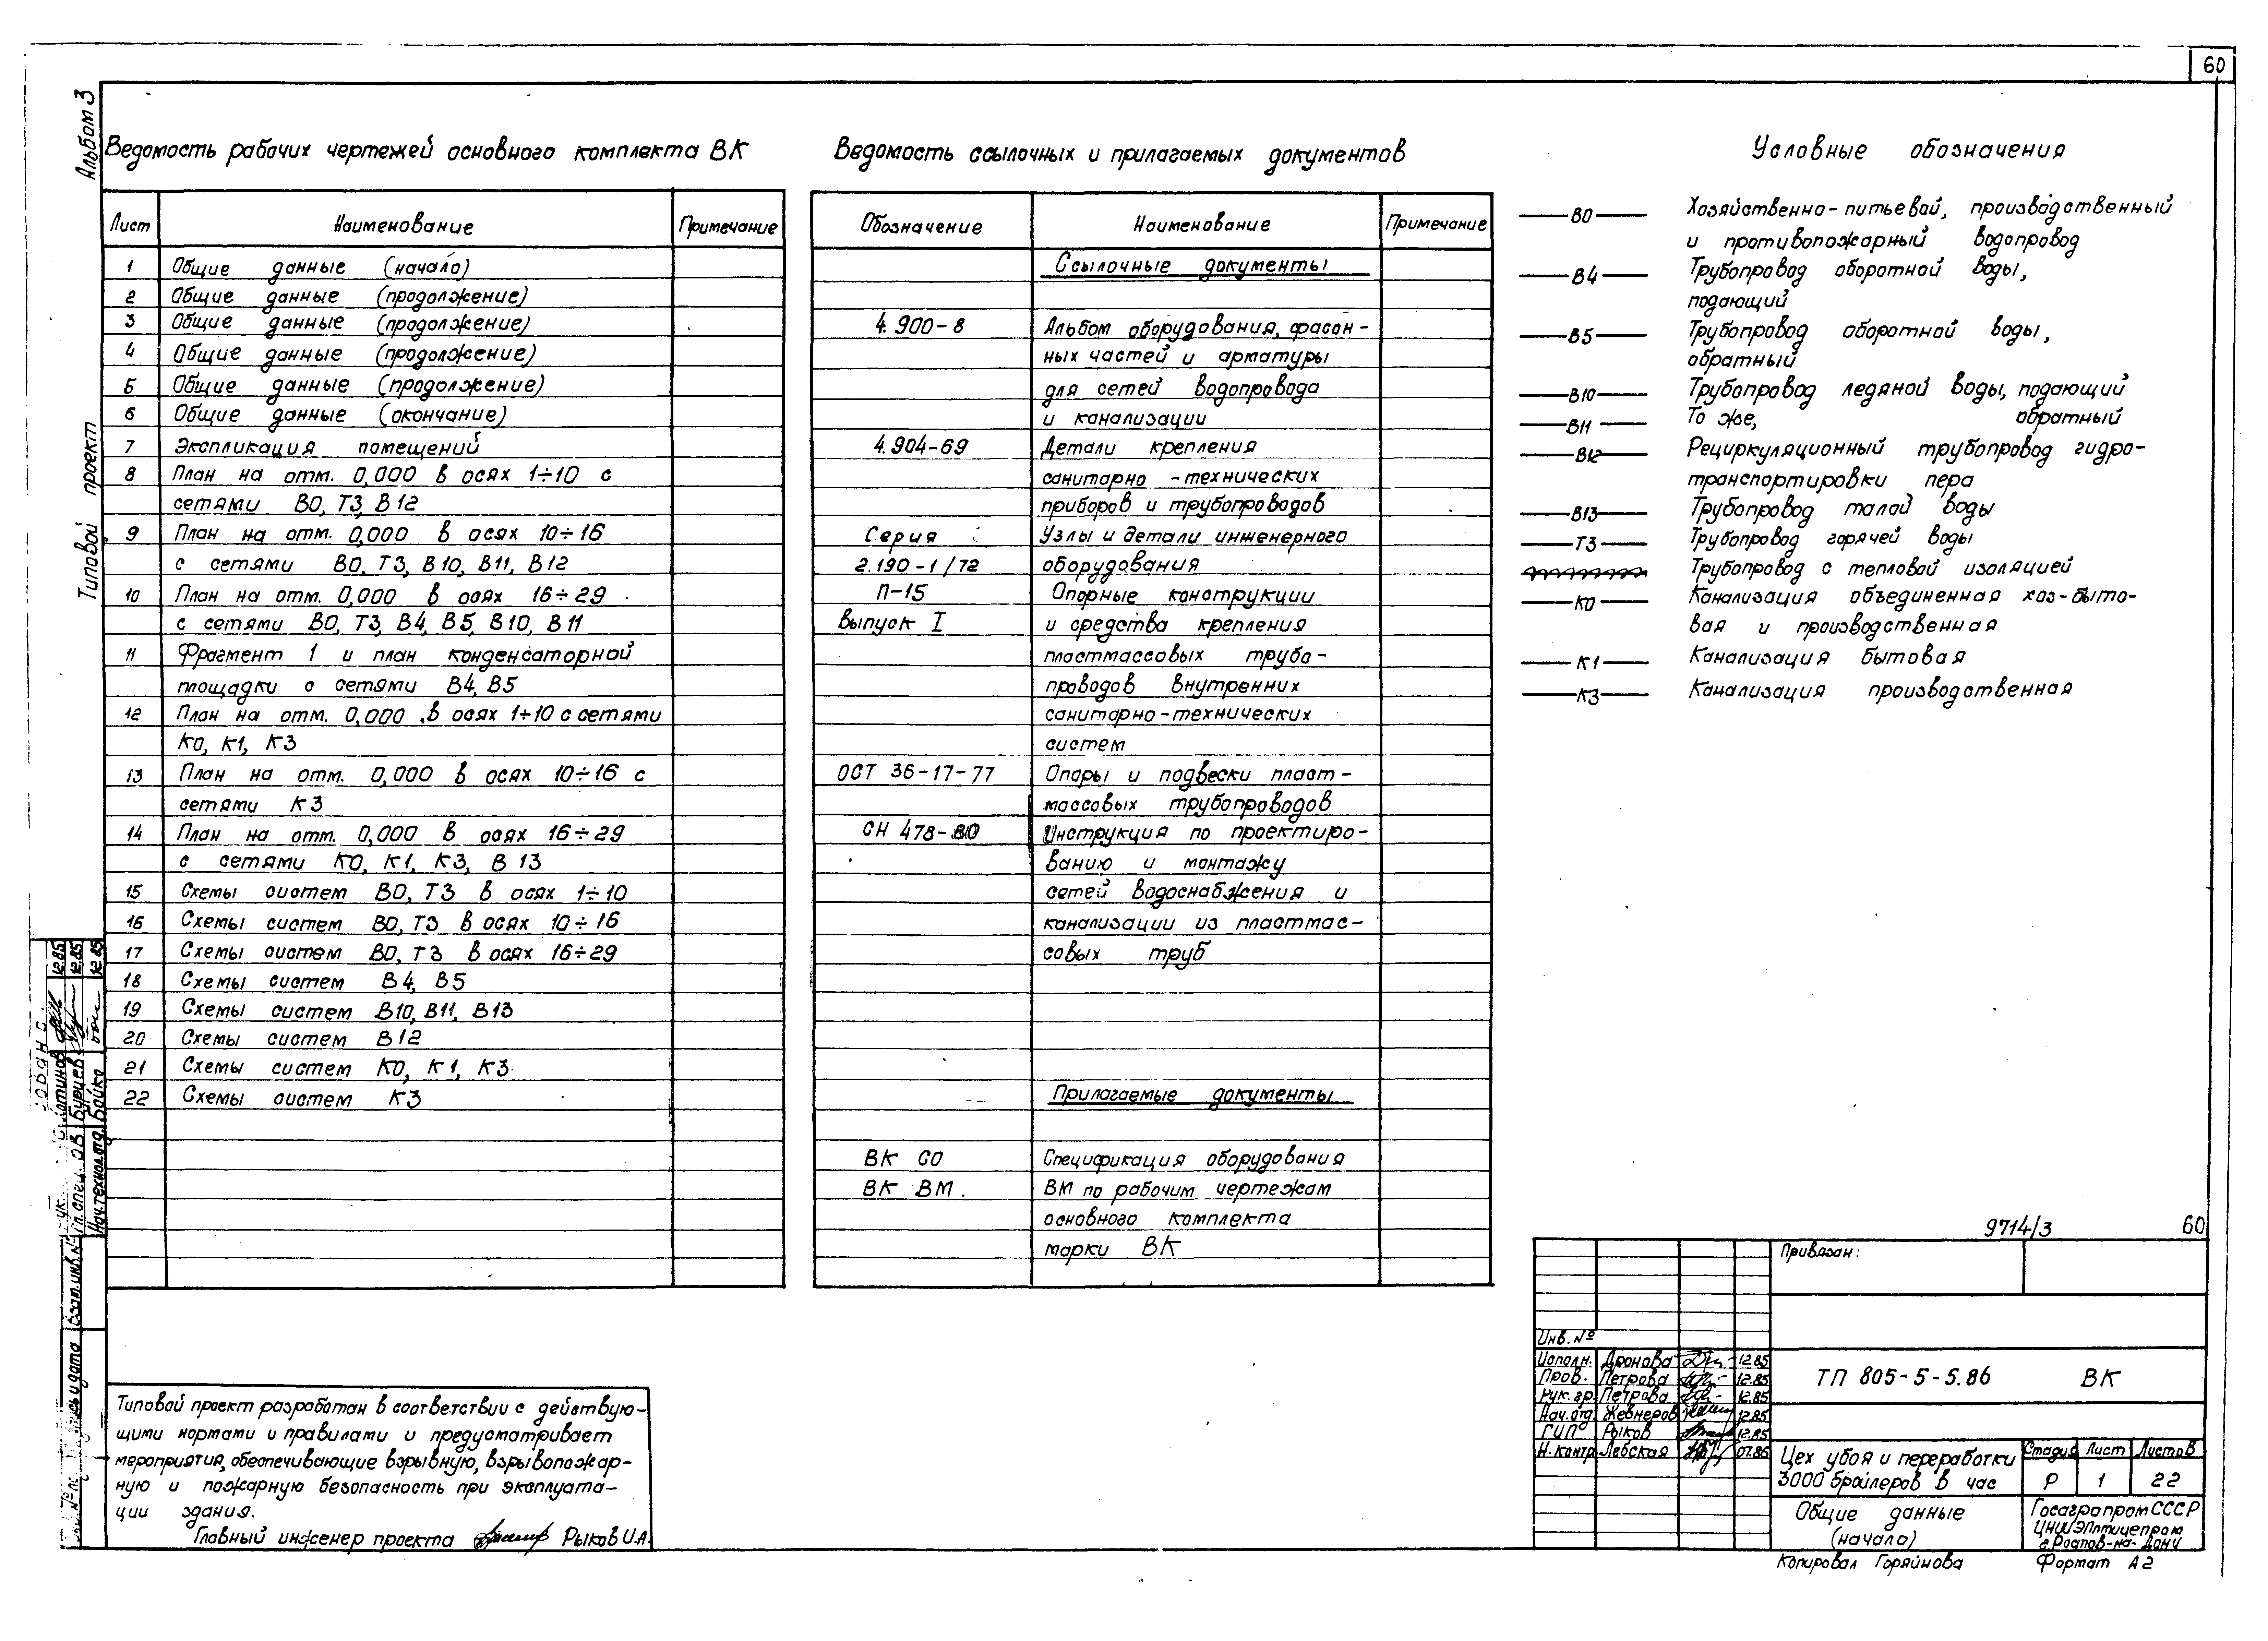 60
Альбом 3
Типовой проект
Ведомость рабочих чертежей основного комплекта ВК
Лист Наименование Примечание
1 Общие данные (начало)
2 Общие данные (продолжение)
3 Общие данные (продолжение)
4 Общие данные (продолжение)
5 Общие данные (продолжение)
6 Общие данные (окончание)
7 Экспликация помещений
8 План на отм. 0,000 в осях 1÷10 с
сетями В0, Т3, В12
9 План на отм. 0,000 в осях 10÷16
с сетями В0, Т3, В10, В11, В12
10 План на отм. 0,000 в осях 16÷29
с сетями В0, Т3, В4, В5, В10, В11
11 Фрагмент 1 и план конденсаторной
площадки с сетями В4, В5
12 План на отм. 0,000 в осях 1÷10 с сетями
К0, К1, К3
13 План на отм. 0,000 в осях 10÷16 с
сетями К3
14 План на отм. 0,000 в осях 16÷29
с сетями К0, К1, К3, В13
15 Схемы систем В0, Т3 в осях 1÷10
16 Схемы систем В0, Т3 в осях 10÷16
17 Схемы систем В0, Т3 в осях 16÷29
18 Схемы систем В4, В5
19 Схемы систем В10, В11, В13
20 Схемы систем В12
21 Схемы систем К0, К1, К3
22 Схемы систем К3
Ведомость ссылочных и прилагаемых документов
Обозначение Наименование Примечание
Ссылочные документы
4.900-8 Альбом оборудования, фасон-
ных частей и арматуры
для сетей водопровода
и канализации
4.904-69 Детали крепления
санитарно-технических
приборов и трубопроводов
Серия Узлы и детали инженерного
2.190-1/72 оборудования
П-15 Опорные конструкции
Выпуск I и средства крепления
пластмассовых трубо-
проводов внутренних
санитарно-технических
систем
ОСТ 36-17-77 Опоры и подвески пласт-
массовых трубопроводов
СН 478-80 Инструкция по проектиро-
ванию и монтажу
сетей водоснабжения и
канализации из пластмас-
совых труб
Прилагаемые документы
ВК СО Спецификация оборудования
ВК ВМ. ВМ по рабочим чертежам
основного комплекта
марки ВК
Условные обозначения
В0 Хозяйственно-питьевой, производственный
и противопожарный водопровод
В4 Трубопровод оборотной воды,
подающий
В5 Трубопровод оборотной воды,
обратный
В10 Трубопровод ледяной воды, подающий
В11 То же, обратный
В12 Рециркуляционный трубопровод гидро-
транспортировки пера
В13 Трубопровод талой воды
Т3 Трубопровод горячей воды
Трубопровод с тепловой изоляцией
К0 Канализация объединенная хоз-быто-
вая и производственная
К1 Канализация бытовая
К3 Канализация производственная
Типовой проект разработан в соответствии с действую-
щими нормами и правилами и предусматривает
мероприятия, обеспечивающие взрывную, взрывопожар-
ную и пожарную безопасность при эксплуата-
ции здания.
Главный инженер проекта Рыков И.А.
9714/3 60
Привязан:
Инв. №
Исполн. Дронова 12.85
Пров. Петрова 12.85
Рук. гр. Петрова 12.85
Нач. отд. Жевнеров 12.85
ГИП Рыков 12.85
Н. контр. Левская 07.86
ТП 805-5-5.86 ВК
Цех убоя и переработки
3000 бройлеров в час
Стадия Лист Листов
Р 1 22
Общие данные
(начало)
Госагропром СССР
ЦНИИЭПптицепром
г. Ростов-на-Дону
Копировал Горяйнова Формат А2
Гл. спец. ОВ Бурцев 12.85
Нач. технол. отд. Бойко 12.85
Взам. инв. №